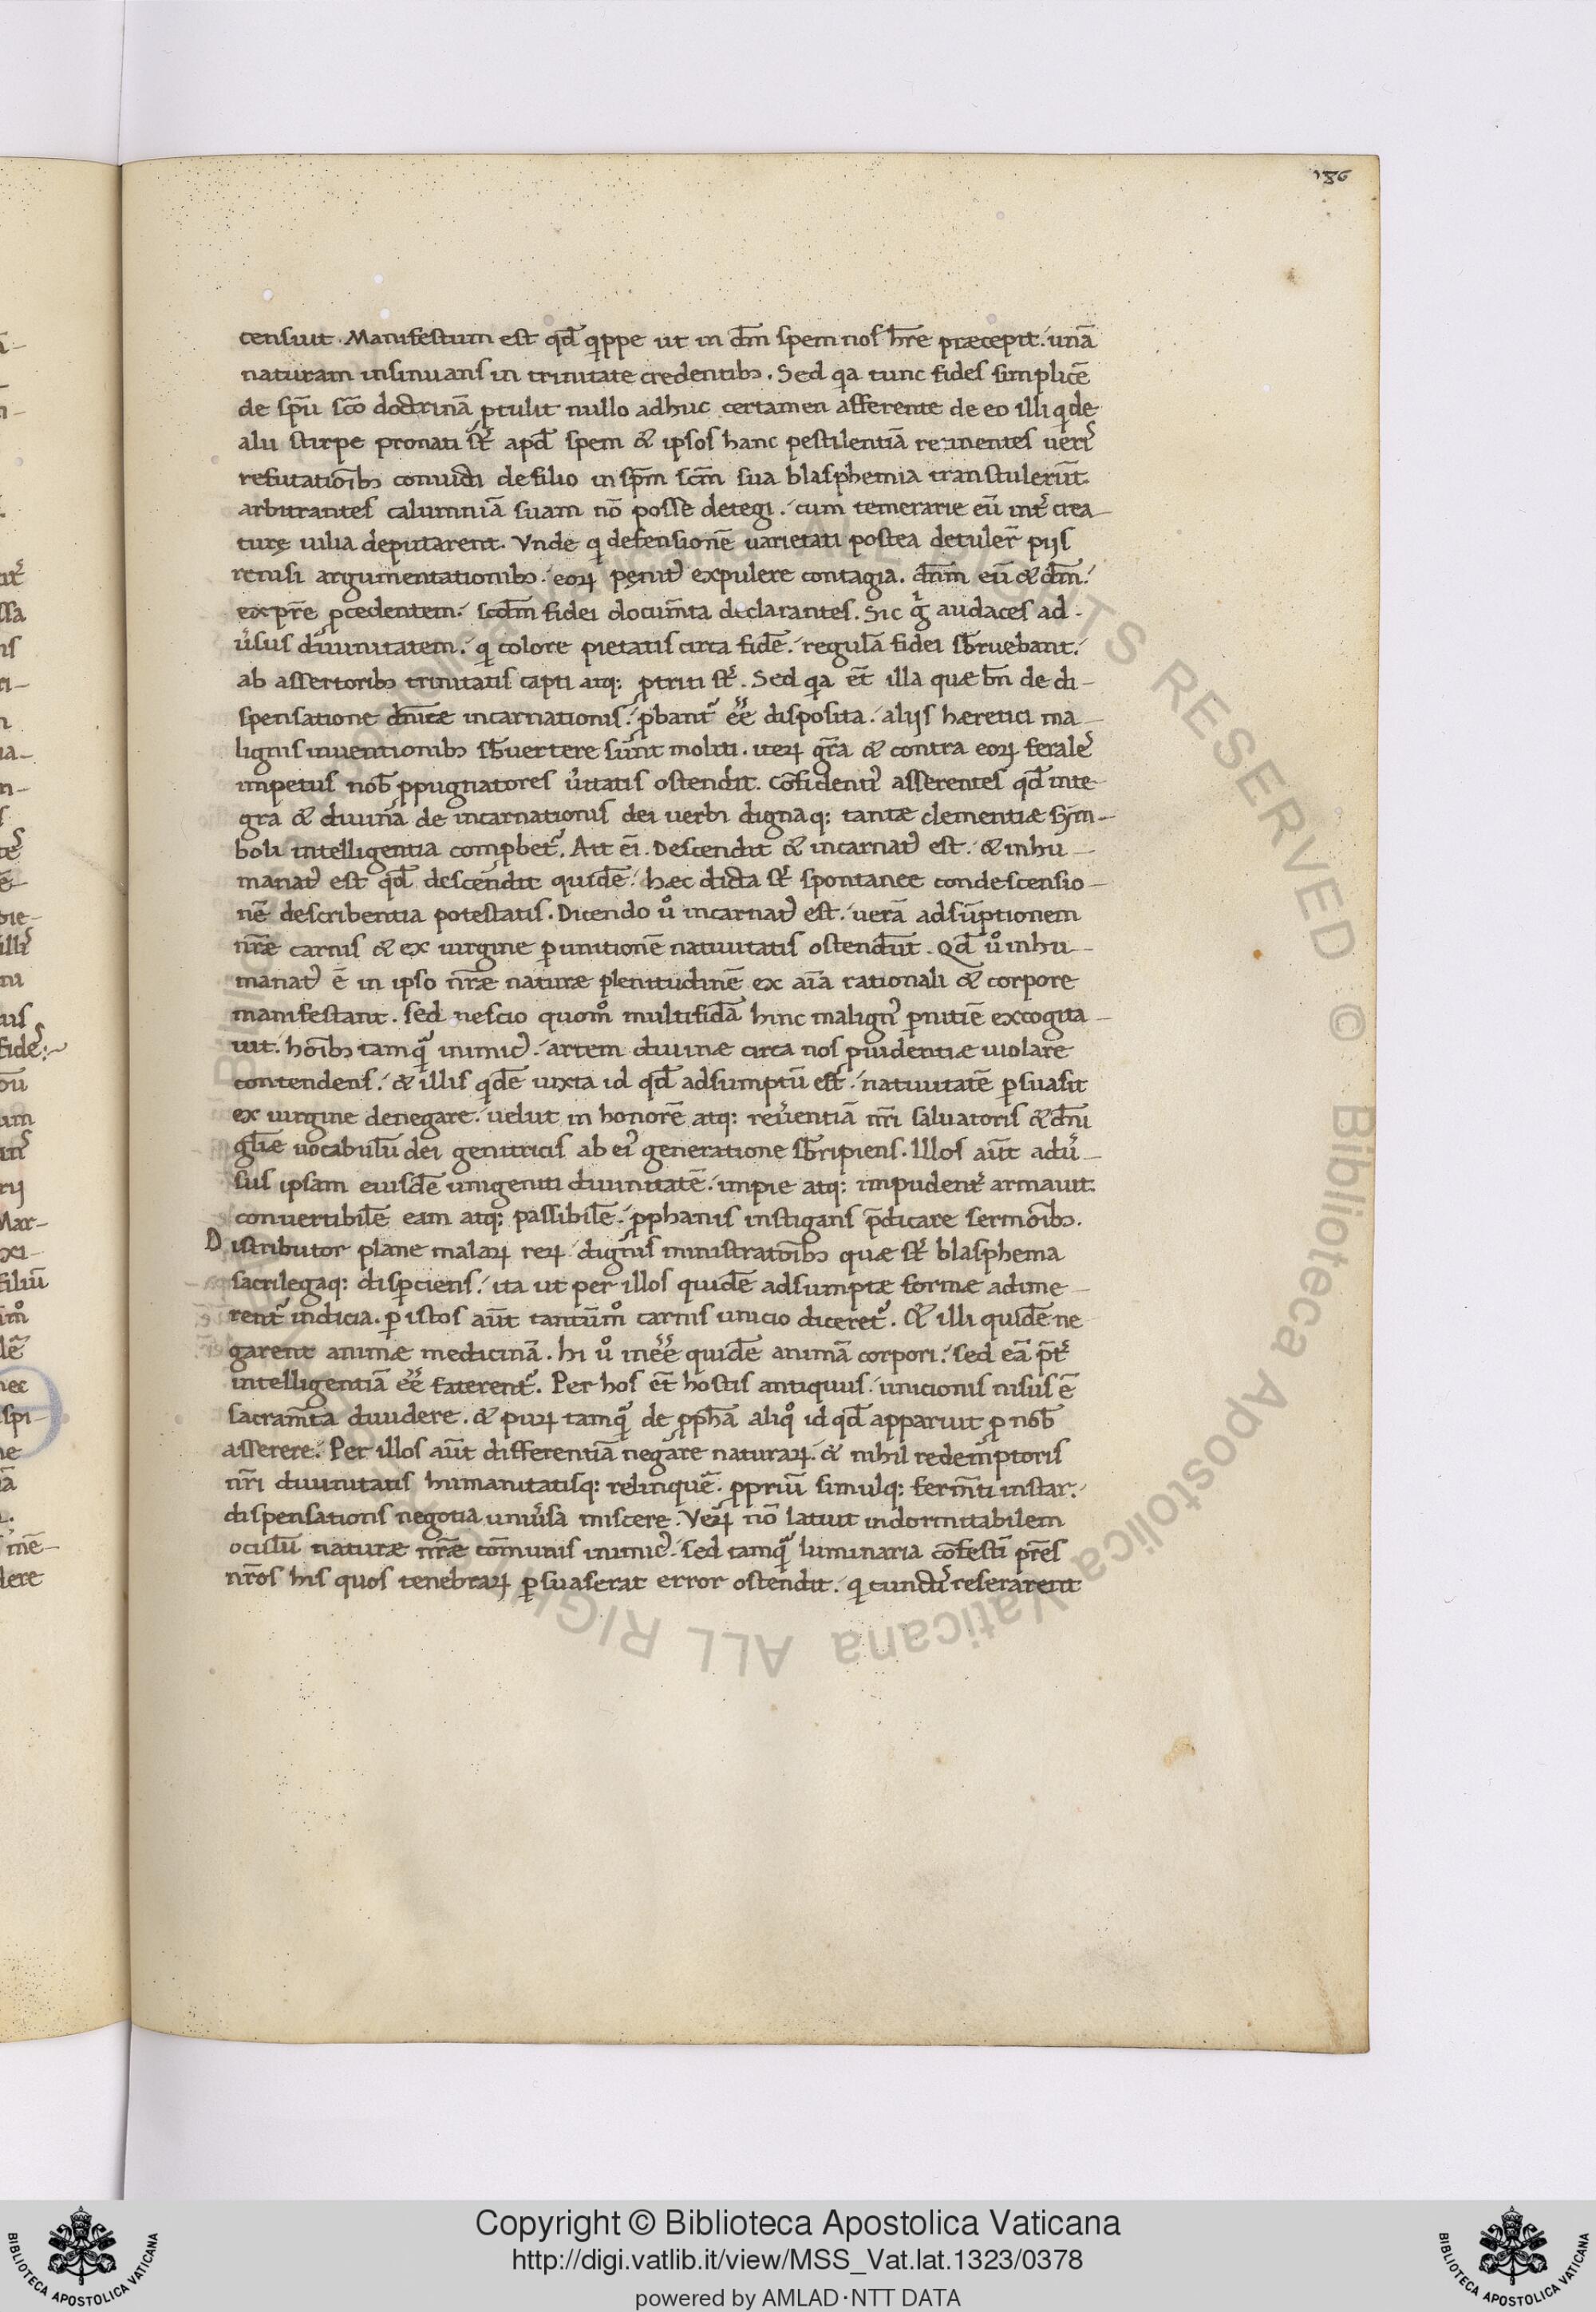 186
censuit. Manifestum est qd̄ qippe ut in dm̄ spem nos hr̄e præcepit. unā
naturam insinuans in trinitate credentibꝫ. Sed qa tunc fides simplicē
de spū sc̄o doctrinā ptulit nullo adhuc certamen afferente de eo illi qi de
alii stirpe pronati st̄ apd̄ spem & ipsos hanc pestilentiā retinentes ueri᾿
refutatiōibꝫ conuicti de filio in spm̄ scm̄ sua blasphemia transtulerūt.
arbitrantes calumniā suam nō posse detegi. cum temerarie eū int᾿ crea–
turę uilia deputarent. Vnde qi defensionē uarietati postea detuler̄ pijs
renisi argumentationibꝫ. eoꝝ penit᾿ expulere contagia. dn̄m eū & dm̄.
ex pr̄e pcedentem. scdm̄ fidei docum̄ta declarantes. Sic g᾿ audaces ad–
u᾿sus diuinitatem. qi colore pietatis circa fidē. regulā fidei sb̄ruebant.
ab assertoribꝫ trinitatis capti atq: ptriti st̄. Sed qa et̄ illa quæ bn̄ de di–
spensatione dn̄icæ incarnationis. pbant᾿ ee᾿ disposita. alijs hæretici ma–
lignis inuentionibꝫ sb̄uertere sunt moliti. iteꝝ gr̄a & contra eoꝝ ferale᾿
impetus nob̄ ppugnatores u᾿itatis ostendit. Cōfident᾿ asserentes qd̄ inte–
gra & diuina de incarnationis dei uerbi dignaq: tantæ clementiæ sym–
boli intelligentia compbet᾿. Ait ei̅. Descendit & incarnat᾿ est. & inhu–
manat᾿ est qd̄ descendit quidē. hæc dicta st̄ spontanee condescensio–
nē describentia potestatis. Dicendo u͛ incarnat᾿ est. uerā adsūptionem
nr̄æ carnis & ex uirgine p unitionē natiuitatis ostendūt. Qd̄ u͛ inhu–
manat᾿ ē in ipso nr̄æ naturæ plenitudinē ex aīa rationali & corpore
manifestant. sed nescio quom͛ multifidā hinc malign᾿ pnitiē excogita–
uit. hoībꝫ tamq̄ inimic᾿. artem diuinæ circa nos puidentiæ uiolare
contendens. & illis qdē iuxta id qd̄ adsumptū est. natiuitatē psuasit
ex uirgine denegare. uelut in honorē atq: reu᾿entiā nr̄i saluatoris & dn̄i
gl̄iæ uocabulū dei genitricis ab ei᾿ generatione sb̄ripiens. Illos aūt adu᾿–
sus ipsam eiusdē unigeniti diuinitatē. impie atq: impudent᾿ armauit.
conuertibilē eam atq: passibilē. pphanis instigans p̄dicare sermōibꝫ.
Distributor plane malaꝝ reꝝ dignis ministratoībꝫ quæ st̄ blasphema
sacrilegaq: disperciens. ita ut per illos quidē adsumptæ formæ adime–
rent᾿ indicia. p istos aūt tantūm͛ carnis unicio diceret᾿. Et illi quidē ne
garent animæ medicinā. hi u͛ inee᾿ quidē animā corpori. sed eā p̄t᾿
intelligentiā ee᾿ faterent᾿. Per hos et̄ hostis antiquus. unicionis nisus ē
sacram̄ta diuidere. & puꝝ tamq̄ de pph̄a aliq͛ id qd̄ apparuit p nob̄
asserere. Per illos aūt differentiā negare naturaꝝ. & nihil redemptoris
nr̄i diuinitatis humanitatisq: relinquē. ppriū simulq: ferm̄ti instar.
dispensationis negotia uniu᾿sa miscere. Veꝝ nō latuit indormitabilem
oculū naturæ nr̄æ cōmunis inimic᾿. sed tamq̄ luminaria cōfestī pr̄es
nr̄os his quos tenebraꝝ psuaserat error ostendit. qi cunct᾿ reserarent
Copyright © Biblioteca Apostolica Vaticana
http://digi.vatlib.it/view/MSS_Vat.lat.1323/0378
powered by AMLAD·NTT DATA